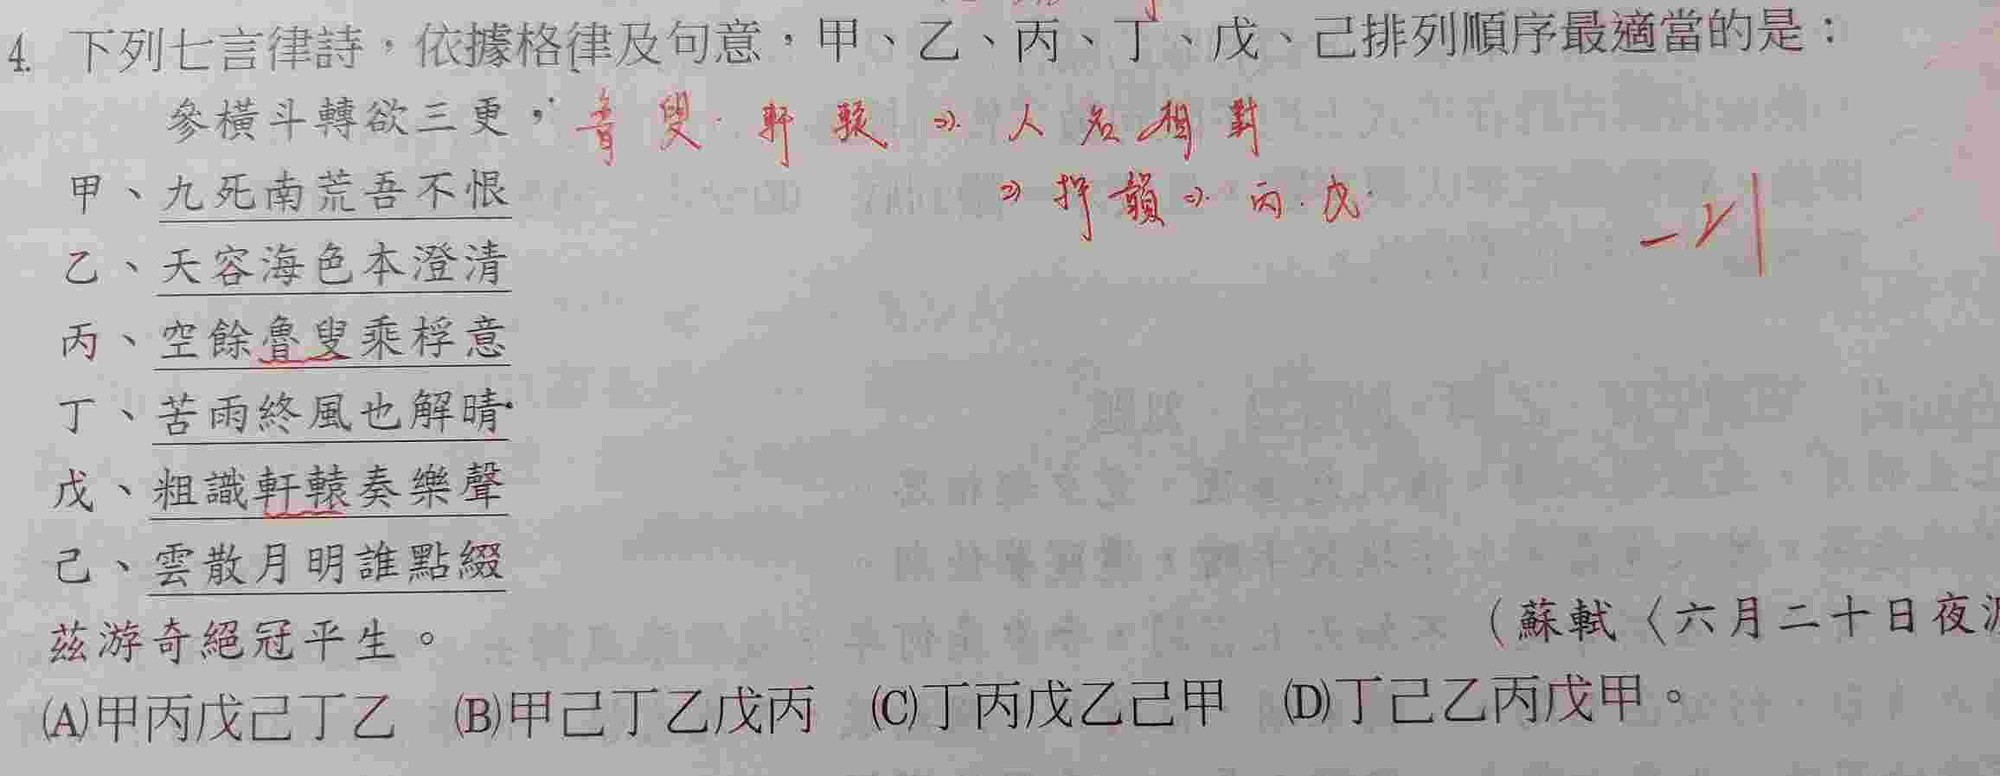 4. 下列七言律詩，依據格律及句意，甲、乙、丙、丁、戊、己排列順序最適當的是：
參橫斗轉欲三更，
叟．軒轅 ⇒ 人名相對
甲、九死南荒吾不恨
⇒ 押韻 ⇒ 丙．戊
乙、天容海色本澄清
丙、空餘魯叟乘桴意
丁、苦雨終風也解晴
戊、粗識軒轅奏樂聲
己、雲散月明誰點綴
茲游奇絕冠平生。
（蘇軾〈六月二十日夜
(A)甲丙戊己丁乙 (B)甲己丁乙戊丙 (C)丁丙戊乙己甲 (D)丁己乙丙戊甲。